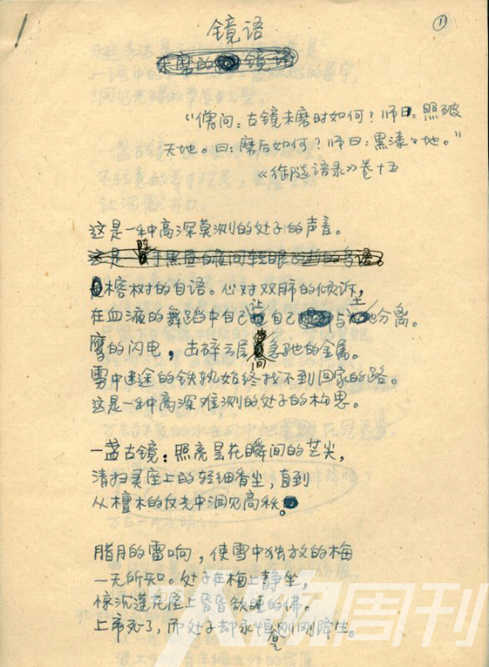 ①
镜语
未磨的镜语
"僧问：古镜未磨时如何？师曰：照破
天地。曰：磨后如何？师曰：黑漆々地。"
《指随语录》卷十五
这是一种高深莫测的处子的声音。
榕树的自语。心对双肺的倾诉，
在血液的舞蹈中自己让自己与尘分离。
鹰的闪电，击碎云层间急驰的金属。
雪中迷途的铁轨始终找不到回家的路。
这是一种高深难测的处子的梅思。
一盏古镜：照亮昙花瞬间的芒尖，
清扫灵座上的轻细香尘，直到
从檀木的反光中洞见高秋。
腊月的雷响，使雪中独放的梅
一无所知。处子在梅上静坐，
像沉莲花座上昏昏欲睡的佛。
上帝死了，而处子却永恒刚刚降生。
人物周刊